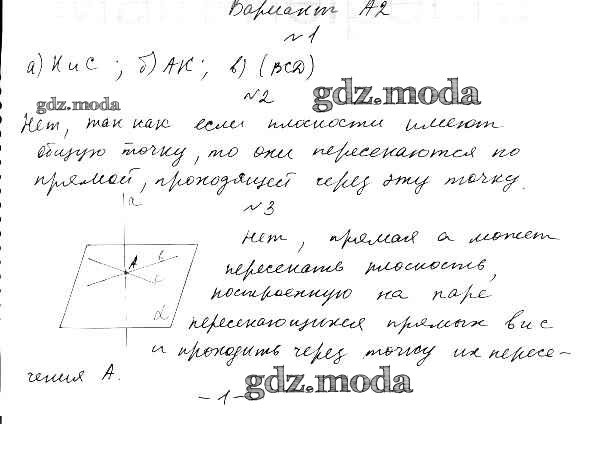 Вариант А2
№1
а) К и С; б) АК; в) (ВСD)
gdz.moda
№2
gdz.moda
Нет, так как если плоскости имеют
общую точку, то они пересекаются по
прямой, проходящей через эту точку.
№3
a
A
b
c
α
Нет, прямая а может
пересекать плоскость,
построенную на паре
пересекающихся прямых b и c
и проходить через точку их пересе-
чения А.
gdz.moda
- 1 -